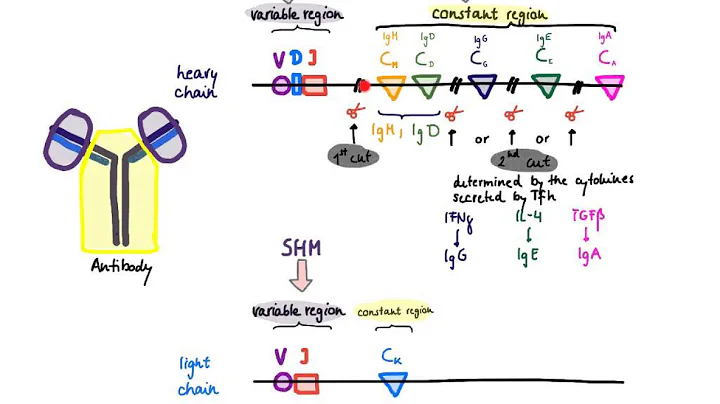 variable region
constant region
IgM IgD IgG IgE IgA
V D J
C_M C_D C_G C_E C_A
heavy
chain
IgM, IgD
or or
1st cut
2nd cut
determined by the cytokines
secreted by Tfh
IFNγ IL-4 TGFβ
IgG IgE IgA
Antibody
SHM
variable region
constant region
V J
C_K
light
chain